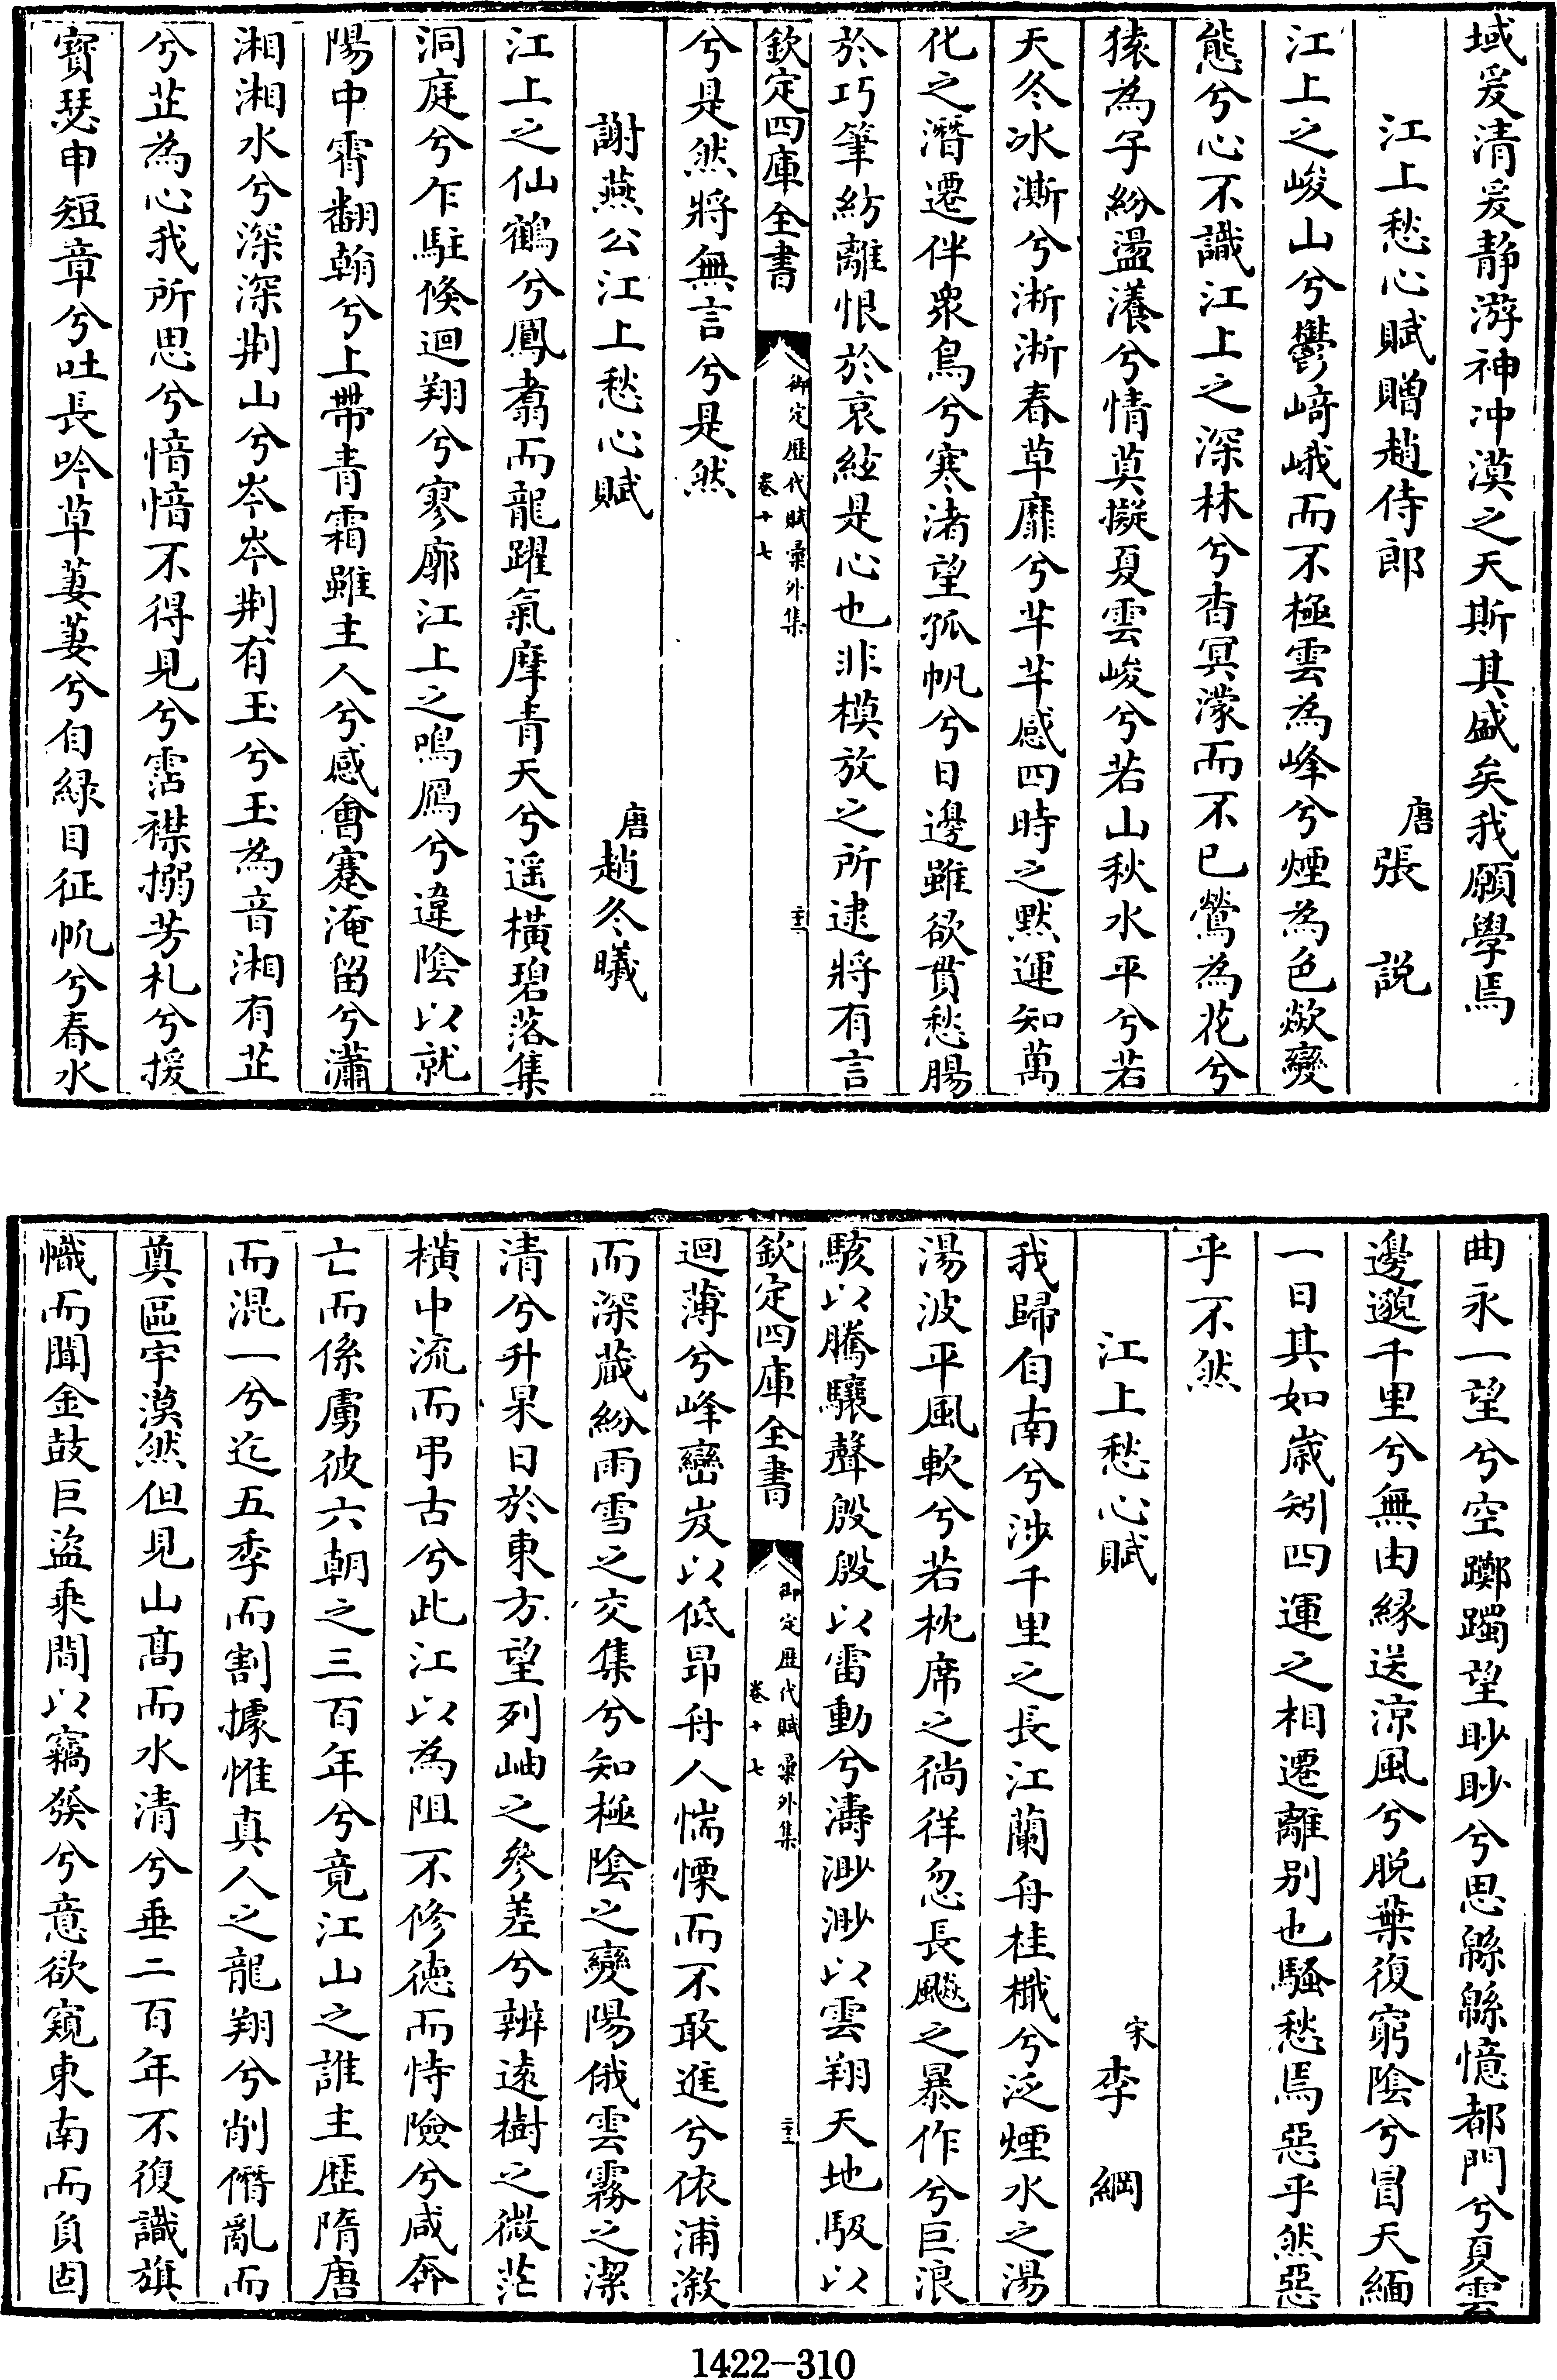 域爰清爰静游神沖漠之天斯其盛矣我願學焉
江上愁心賦贈趙侍郎
唐張說
江上之峻山兮鬱﨑峨而不極雲為峰兮煙為色歘變
態兮心不識江上之深林兮杳冥濛而不已鶯為花兮
猿為子紛盪瀁兮情莫擬夏雲峻兮若山秋水平兮若
天冬冰澌兮淅淅春草靡兮芊芊感四時之黙運知萬
化之潛遷伴衆鳥兮寒渚望孤帆兮日邊雖欲貫愁腸
於巧筆紡離恨於哀絃是心也非模放之所逮將有言
欽定四庫全書
御定歷代賦彙外集
卷十七
兮是然將無言兮是然
謝燕公江上愁心賦
唐趙冬曦
江上之仙鶴兮鳳翥而龍躍氣摩青天兮遥橫碧落集
洞庭兮乍駐倏迴翔兮寥廓江上之鳴鴈兮違陰以就
陽中霄翻翰兮上帶青霜雖主人兮感會蹇淹留兮瀟
湘湘水兮深深荆山兮岑岑荆有玉兮玉為音湘有芷
兮芷為心我所思兮愔愔不得見兮霑襟搦芳札兮援
寳瑟申短章兮吐長吟草萋萋兮自緑目征帆兮春水
曲永一望兮空躑躅望眇眇兮思緜緜憶都門兮夏雲
邊邈千里兮無由緣送涼風兮脱葉復窮陰兮冒天緬
一日其如嵗矧四運之相遷離别也騷愁焉惡乎然惡
乎不然
江上愁心賦
宋李綱
我歸自南兮涉千里之長江蘭舟桂檝兮泛煙水之湯
湯波平風軟兮若枕席之徜徉忽長飈之暴作兮巨浪
駭以騰驤聲殷殷以雷動兮濤渺渺以雲翔天地馺以
欽定四庫全書
御定歷代賦彙外集
卷十七
迴薄兮峰巒岌以低昻舟人惴慄而不敢進兮依浦漵
而深藏紛雨雪之交集兮知極陰之變陽俄雲霧之潔
清兮升杲日於東方望列岫之參差兮辨逺樹之微茫
橫中流而弔古兮此江以為阻不修徳而恃險兮咸奔
亡而係虜彼六朝之三百年兮竟江山之誰主歴隋唐
而混一兮迄五季而割據惟真人之龍翔兮削僭亂而
奠區宇漠然但見山髙而水清兮垂二百年不復識旗
幟而聞金鼓巨盗乗間以竊發兮意欲窺東南而負固
1422-310